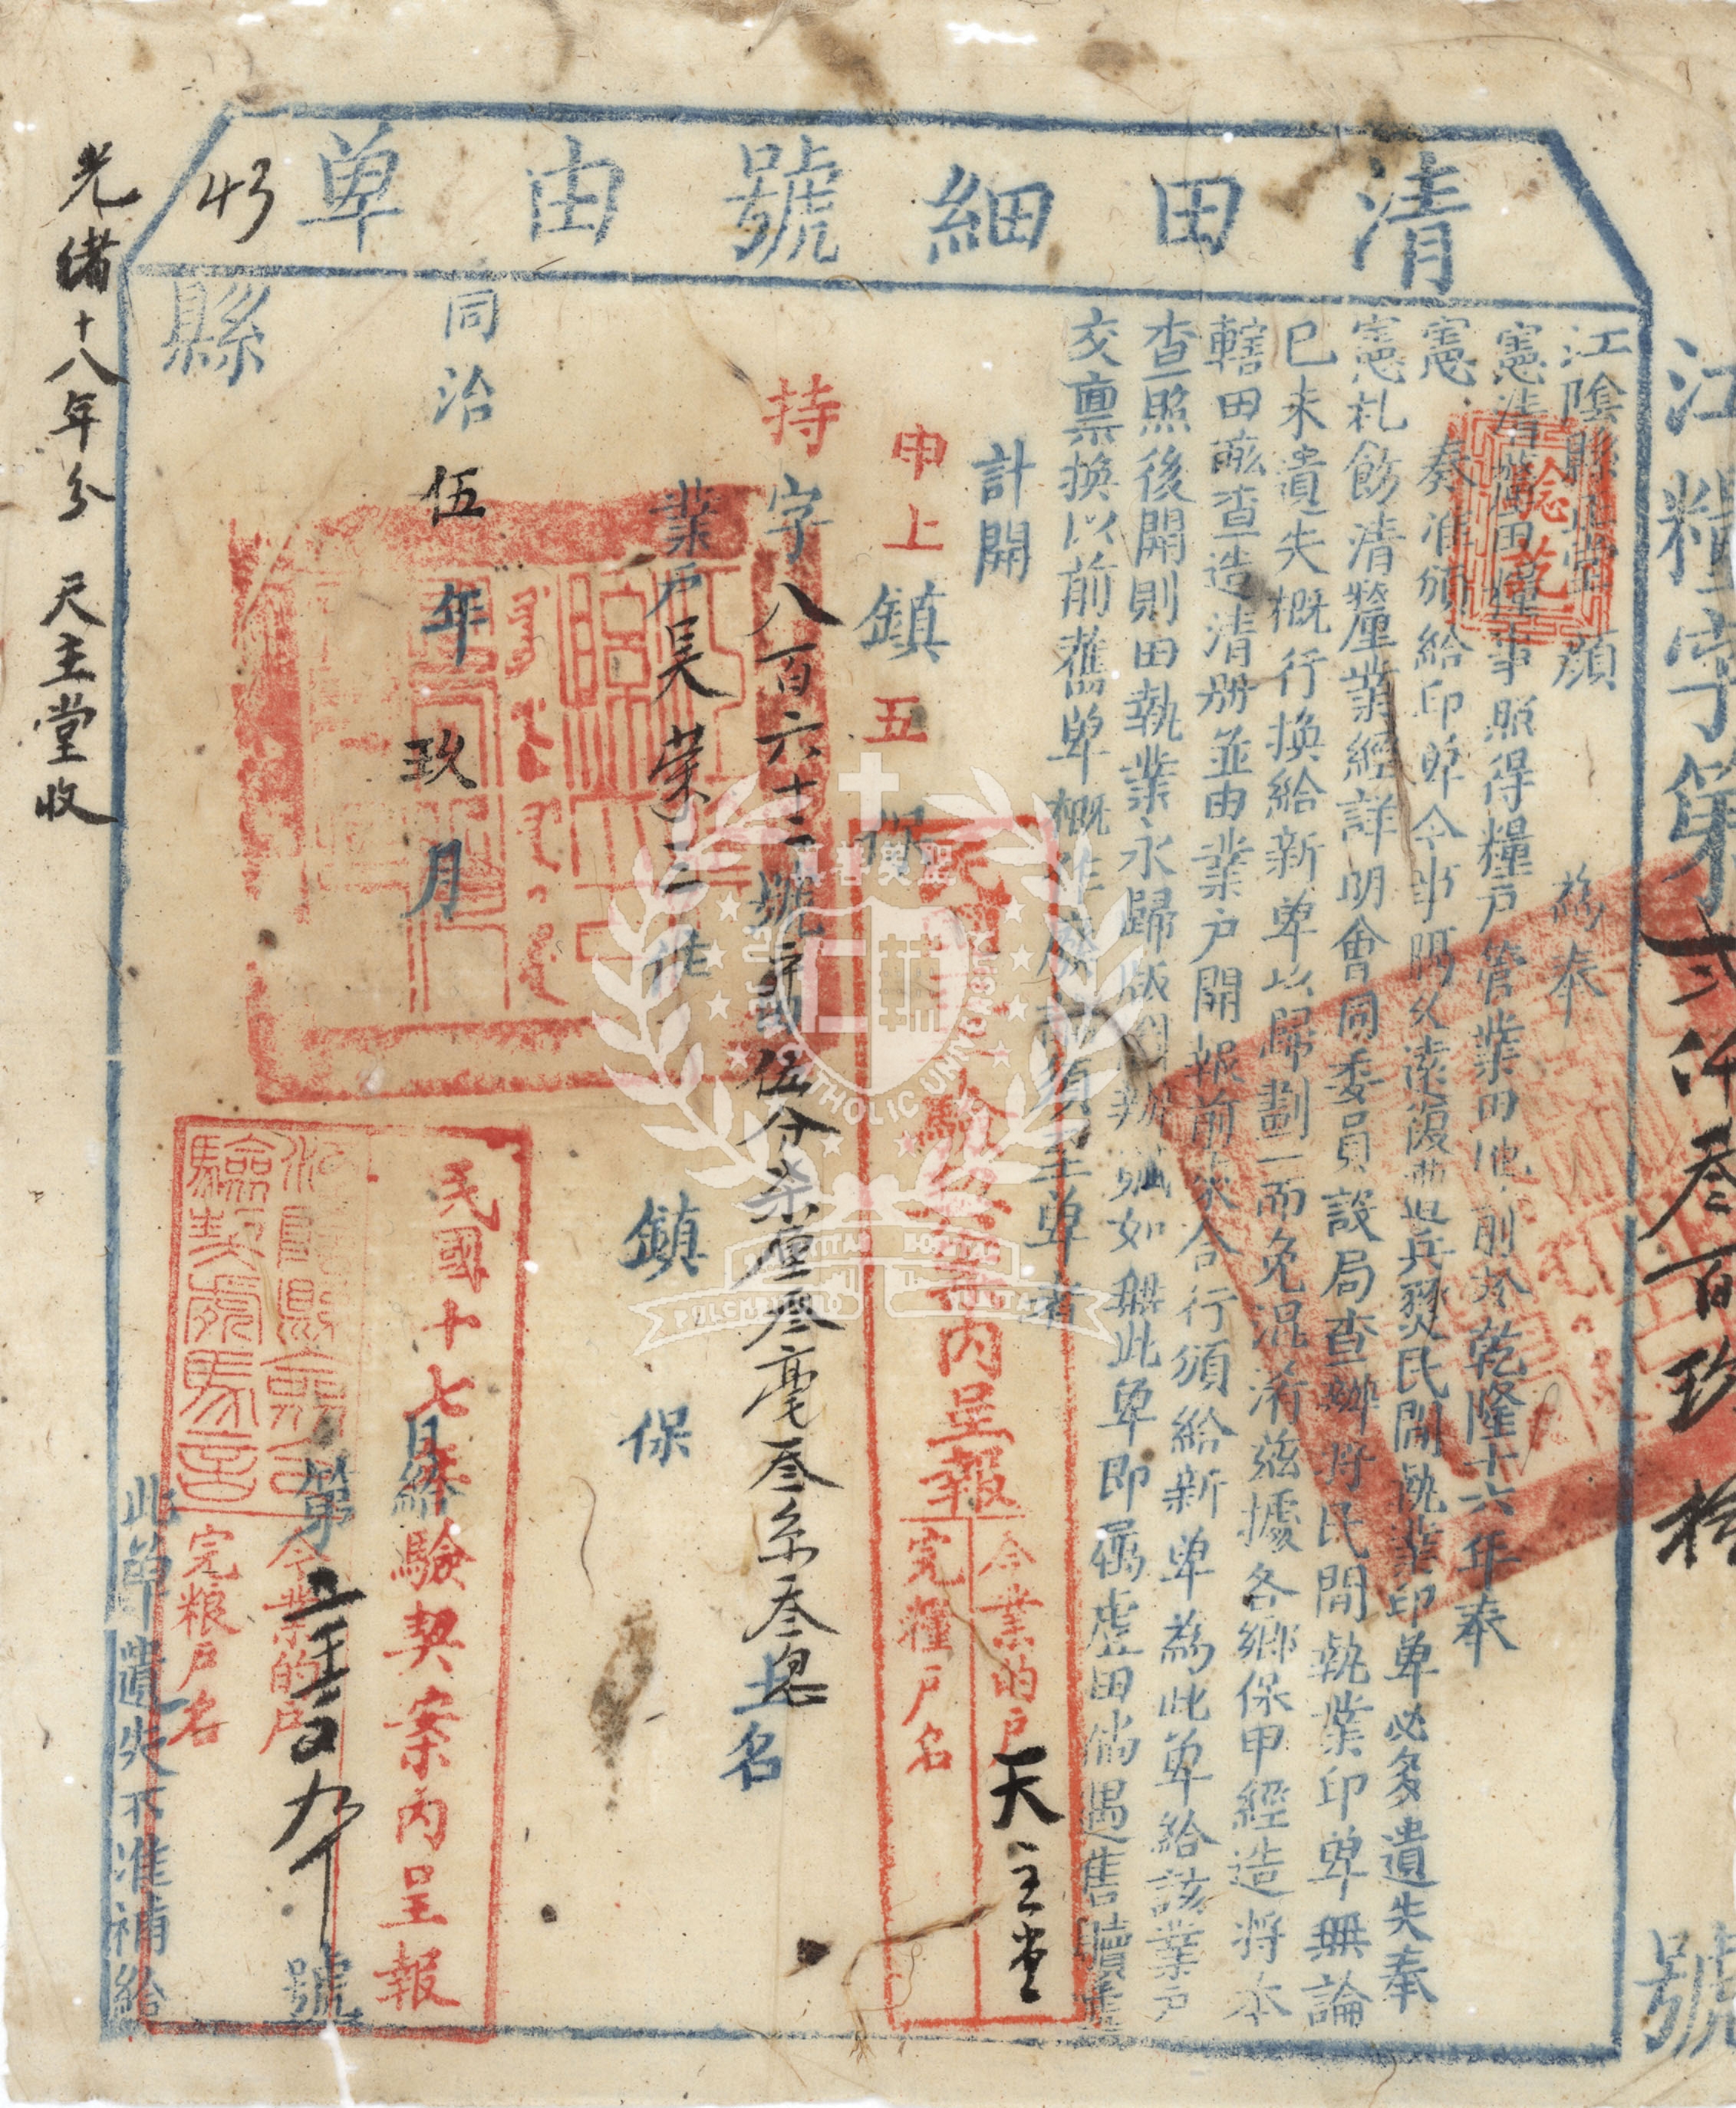 清田細號由單
江糧字第 貳仟叁百玖拾 號
江陰縣正堂顏 為奉
憲清釐田糧事照得糧戶管業田地前於乾隆十六年奉
憲 奏准頒給印單今事隔久遠復遭兵燹民間執業印單必多遺失奉
憲札飭清釐業經詳明會同委員設局查辦將民間執業印單無論
已未遺失概行換給新單以歸劃一而免混淆茲據各鄉保甲經造將本
轄田畝查造清册並由業戶開報前來合行頒給新單為此單給該業戶
查照後開則田執業永歸版圖辦賦如無此單即屬虛田倘遇售贖業
交稟換以前舊單概作廢紙須至單者
計開
申上鎮五保
持字八百六十三號平田伍分柒厘叁毫叁糸叁忽 土名
業戶吳榮三 住 鎮 保
同治伍年玖月 日給
第 號
縣
此單遺失不准補給
驗訖
驗契案內呈報
今業的戶 天主堂
完糧戶名
民國十七年驗契案內呈報
今業的戶
完粮戶名
43
光緒十八年分 天主堂收
CATHOLIC UNIVERSITY